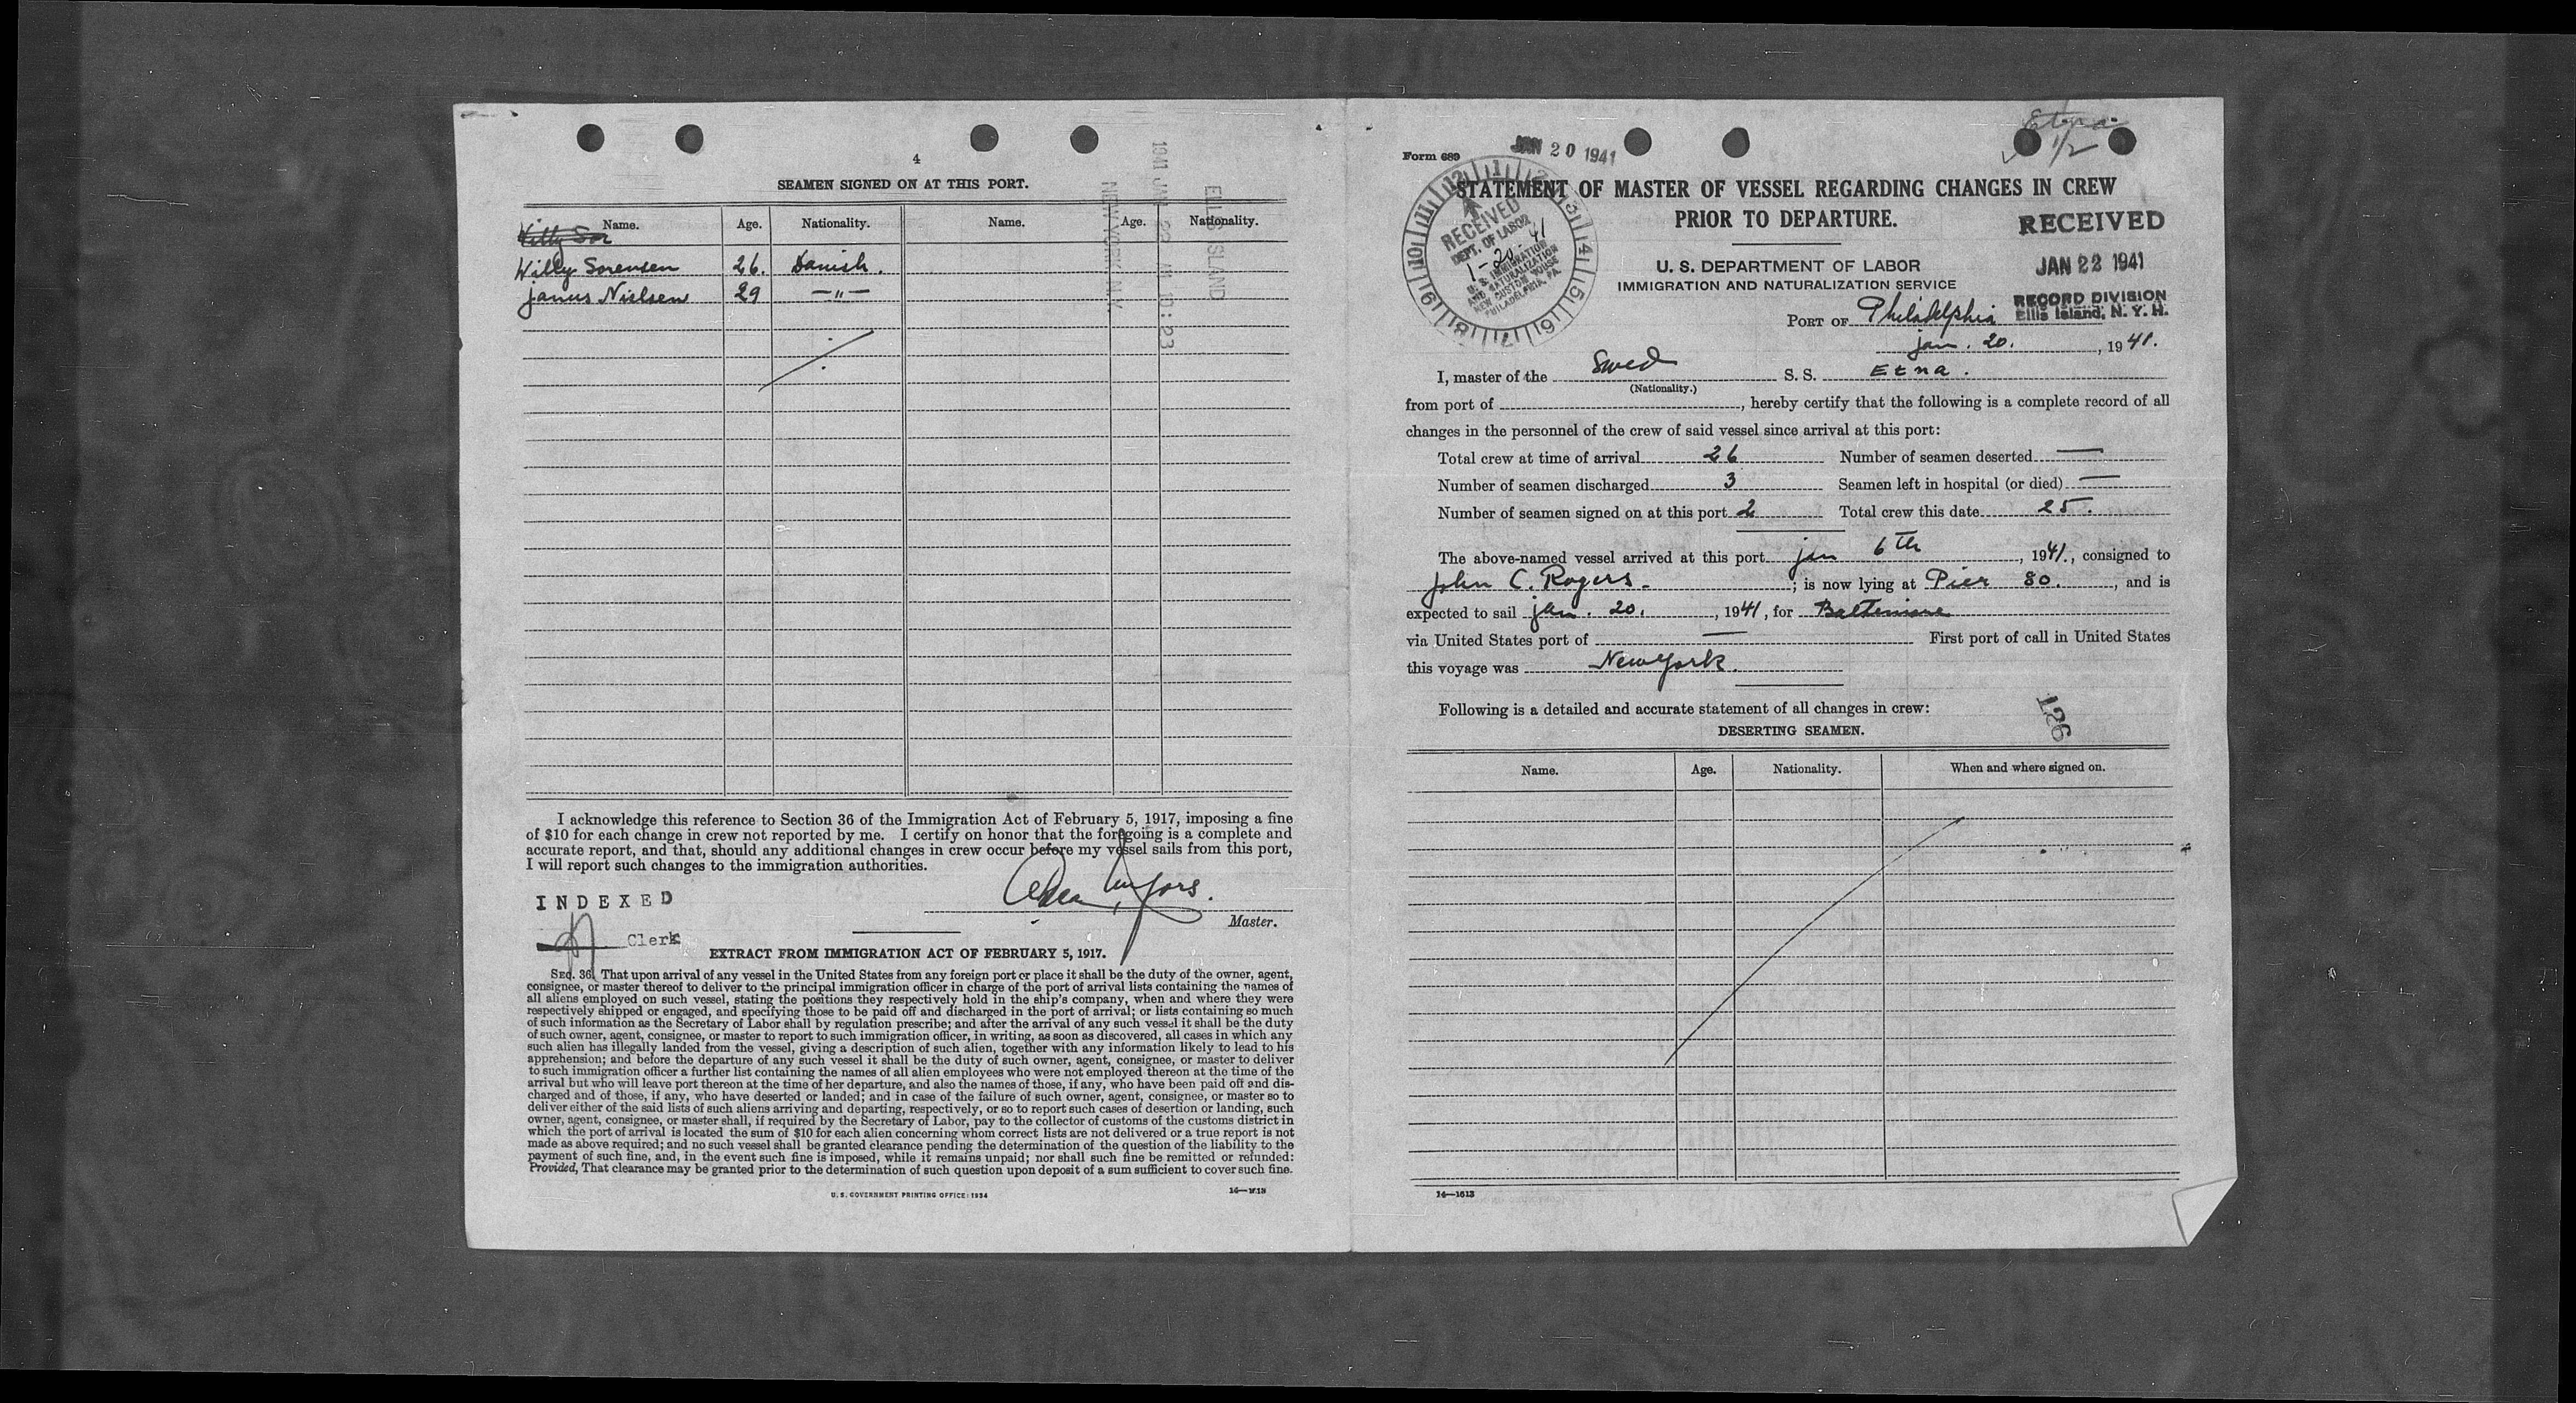 4
SEAMEN SIGNED ON AT THIS PORT.
Name. Age. Nationality. Name. Age. Nationality.
Willy Sor
Willy Sorensen 26. Danish.
Janus Nielsen 29 —"—
1941 JAN 22 AM 10:23
ELLIS ISLAND
NEW YORK N.Y.
I acknowledge this reference to Section 36 of the Immigration Act of February 5, 1917, imposing a fine
of $10 for each change in crew not reported by me. I certify on honor that the foregoing is a complete and
accurate report, and that, should any additional changes in crew occur before my vessel sails from this port,
I will report such changes to the immigration authorities.
INDEXED
Clerk
Master.
EXTRACT FROM IMMIGRATION ACT OF FEBRUARY 5, 1917.
SEC. 36. That upon arrival of any vessel in the United States from any foreign port or place it shall be the duty of the owner, agent,
consignee, or master thereof to deliver to the principal immigration officer in charge of the port of arrival lists containing the names of
all aliens employed on such vessel, stating the positions they respectively hold in the ship's company, when and where they were
respectively shipped or engaged, and specifying those to be paid off and discharged in the port of arrival; or lists containing so much
of such information as the Secretary of Labor shall by regulation prescribe; and after the arrival of any such vessel it shall be the duty
of such owner, agent, consignee, or master to report to such immigration officer, in writing, as soon as discovered, all cases in which any
such alien has illegally landed from the vessel, giving a description of such alien, together with any information likely to lead to his
apprehension; and before the departure of any such vessel it shall be the duty of such owner, agent, consignee, or master to deliver
to such immigration officer a further list containing the names of all alien employees who were not employed thereon at the time of the
arrival but who will leave port thereon at the time of her departure, and also the names of those, if any, who have been paid off and dis-
charged and of those, if any, who have deserted or landed; and in case of the failure of such owner, agent, consignee, or master so to
deliver either of the said lists of such aliens arriving and departing, respectively, or so to report such cases of desertion or landing, such
owner, agent, consignee, or master shall, if required by the Secretary of Labor, pay to the collector of customs of the customs district in
which the port of arrival is located the sum of $10 for each alien concerning whom correct lists are not delivered or a true report is not
made as above required; and no such vessel shall be granted clearance pending the determination of the question of the liability to the
payment of such fine, and, in the event such fine is imposed, while it remains unpaid; nor shall such fine be remitted or refunded:
Provided, That clearance may be granted prior to the determination of such question upon deposit of a sum sufficient to cover such fine.
U. S. GOVERNMENT PRINTING OFFICE: 1934
16—1613
Etna
1/2
Form 689
JAN 20 1941
STATEMENT OF MASTER OF VESSEL REGARDING CHANGES IN CREW
PRIOR TO DEPARTURE.
12 1 2 3 4 5 6 7 8 9 10 11
RECEIVED
DEPT. OF LABOR
1-20-41
U. S. IMMIGRATION
AND NATURALIZATION
NEW CUSTOM HOUSE
PHILADELPHIA, PA.
RECEIVED
JAN 22 1941
RECORD DIVISION
Ellis Island, N. Y. H.
U. S. DEPARTMENT OF LABOR
IMMIGRATION AND NATURALIZATION SERVICE
PORT OF Philadelphia
Jan. 20., 1941.
I, master of the Swed S. S. Etna.
(Nationality.)
from port of, hereby certify that the following is a complete record of all
changes in the personnel of the crew of said vessel since arrival at this port:
Total crew at time of arrival 26 Number of seamen deserted —
Number of seamen discharged 3 Seamen left in hospital (or died) —
Number of seamen signed on at this port 2 Total crew this date 25.
The above-named vessel arrived at this port Jan 6th, 1941., consigned to
John C. Rogers.; is now lying at Pier 80., and is
expected to sail Jan. 20., 1941, for Baltimore
via United States port of — First port of call in United States
this voyage was New York.
Following is a detailed and accurate statement of all changes in crew:
126
DESERTING SEAMEN.
Name. Age. Nationality. When and where signed on.
14—1613